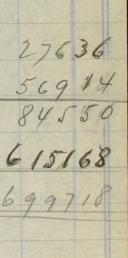 27636
56914
84550
615168
699718